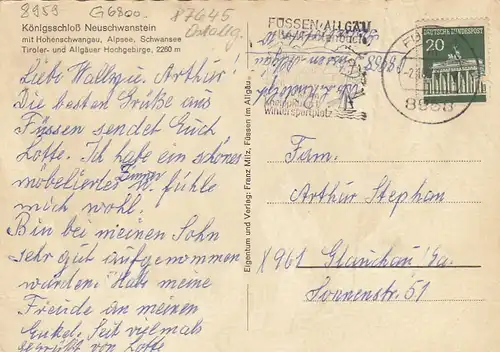 8959 G6800. 87645
Königsschloß Neuschwanstein
mit Hohenschwangau, Alpsee, Schwansee
Tiroler- und Allgäuer Hochgebirge, 2260 m
Liebe Wally u. Arthur!
Die besten Grüße aus
Füssen sendet Euch
Lotte. Ich habe ein schönes
möbeliertes Zimmer u. fühle
mich wohl.
Bin bei meinen Sohn
sehr gut aufgenommen
worden. Hab meine
Freude an meinen
Enkel. Seit vielmals
gegrüßt von Lotte
Eigentum und Verlag: Franz Milz, Füssen im Allgäu
FÜSSEN/ALLGÄU
Wintersportplatz
8958
20
DEUTSCHE BUNDESPOST
8958
Fam.
Arthur Stephan
X 961 Glauchau/Sa.
Sonnenstr. 51